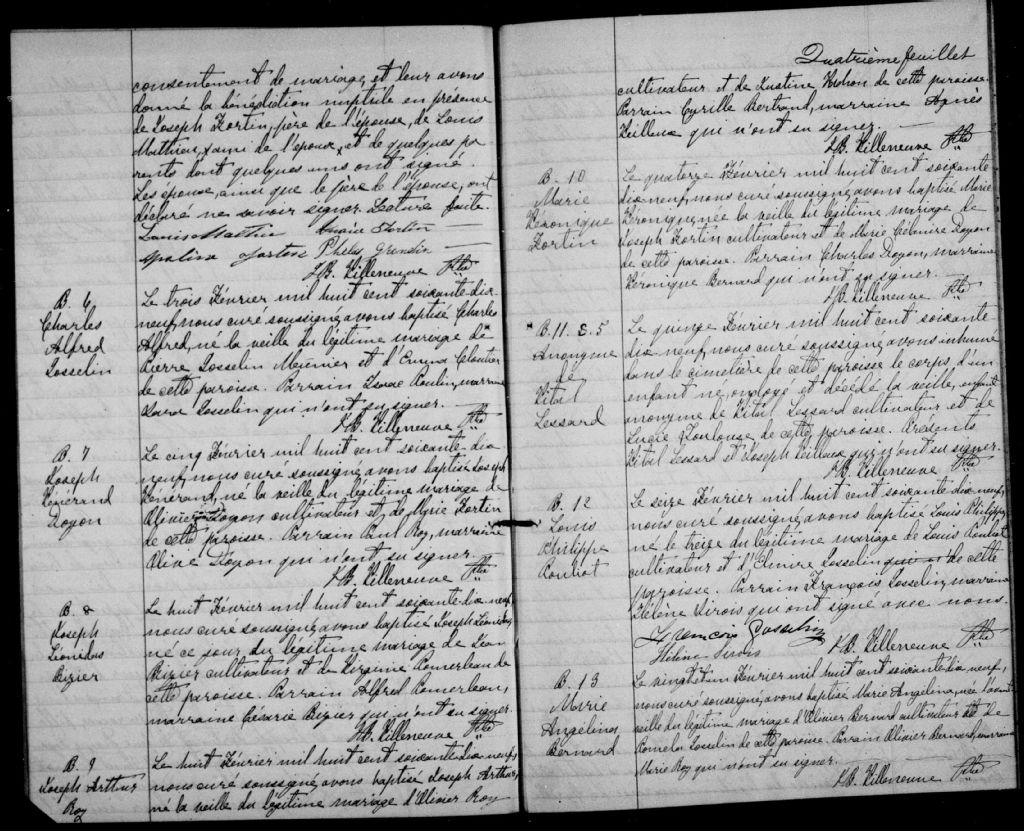 consentement de mariage, et leur avons
donné la bénédiction nuptiale en présence
de Joseph Fortin, père de l'épouse, de Louis
Mathieu, ami de l'époux, et de quelques pa-
rents dont quelques uns ont signé.
Les époux, ainsi que le père de l'épouse, ont
déclaré ne savoir signer. Lecture faite.
Louis Mathieu Fortin
Fortin Grondin
J.B. Villeneuve Ptre
B. 6
Charles
Alfred
Josselin
Le trois Février mil huit cent soixante-dix-
neuf, nous curé soussigné, avons baptisé Charles
Alfred, né la veille du légitime mariage de
Pierre Josselin Meunier et d'Emma Cloutier
de cette paroisse. Parrain Isaac Poulin, marraine
Josselin qui n'ont su signer.
J.B. Villeneuve Ptre
B. 7
Joseph
Vénérand
Doyon
Le cinq Février mil huit cent soixante-dix-
neuf, nous curé soussigné, avons baptisé Joseph
Vénérand, né la veille du légitime mariage de
Olivier Doyon cultivateur et de Fortin
de cette paroisse. Parrain Paul Roy, marraine
Olive Doyon qui n'ont su signer.
J.B. Villeneuve Ptre
B. 8
Joseph
Léonidas
Bizier
Le huit Février mil huit cent soixante-dix-neuf,
nous curé soussigné, avons baptisé Joseph Léonidas,
né ce jour du légitime mariage de Jean
Bizier cultivateur et de Virginie Pomerleau de
cette paroisse. Parrain Alfred Pomerleau,
marraine Césarie Bizier qui n'ont su signer.
J.B. Villeneuve Ptre
B. 9
Joseph Arthur
Roy
Le huit Février mil huit cent soixante-dix-neuf,
nous curé soussigné, avons baptisé Joseph Arthur,
né la veille du légitime mariage d'Olivier Roy
Quatrième feuillet
cultivateur et de Justine de cette paroisse.
Parrain Cyrille Bertrand, marraine Agnès
Veilleux qui n'ont su signer.
J.B. Villeneuve Ptre
B. 10
Marie
Véronique
Fortin
Le quatorze Février mil huit cent soixante
dix-neuf, nous curé soussigné, avons baptisé Marie
Véronique, née la veille du légitime mariage de
Joseph Fortin cultivateur et de Marie Célanire Doyon
de cette paroisse. Parrain Charles Doyon, marraine
Véronique Bernard qui n'ont su signer.
J.B. Villeneuve Ptre
B. 11. S. 5
Anonyme
de
Vital
Lessard
Le quinze Février mil huit cent soixante
dix-neuf, nous curé soussigné, avons inhumé
dans le cimetière de cette paroisse le corps d'un
enfant né, ondoyé et décédé la veille, enfant
anonyme de Vital Lessard cultivateur et de
Lucie Toulouse de cette paroisse. Présents
Vital Lessard et Joseph Veilleux qui n'ont su signer.
J.B. Villeneuve Ptre
B. 12
Louis
Philippe
Pouliot
Le seize Février mil huit cent soixante-dix-neuf,
nous curé soussigné, avons baptisé Louis Philippe,
né le treize du légitime mariage de Louis Pouliot
cultivateur et d'Elmire Josselin de cette
paroisse. Parrain François Josselin, marraine
Hélène Sirois qui ont signé avec nous.
François Josselin
Hélène Sirois
J.B. Villeneuve Ptre
B. 13
Marie
Angélina
Bernard
Le vingt Février mil huit cent soixante-dix-neuf,
nous curé soussigné, avons baptisé Marie Angelina, née l'avant
veille du légitime mariage d'Olivier Bernard cultivateur et de
Josselin de cette paroisse. Parrain Olivier Bernard, marraine
Marie Roy qui n'ont su signer.
J.B. Villeneuve Ptre